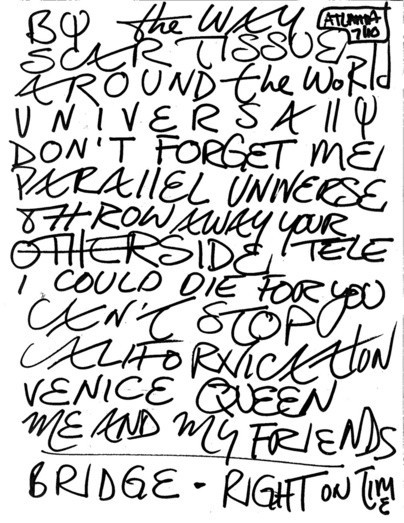 BY the WAY
ATLANTA
7/10
SCAR TISSUE
AROUND the WORld
UNIVERSAllY
DON'T FORGET ME
PARAllEL UNIVERSE
THROW AWAY YOUR
OTHERSIDE TELE
I COULD DIE FOR YOU
CAN'T STOP
CALIFORNICATION
VENICE QUEEN
ME AND MY FRIENDS
BRIDGE - RIGHT ON TIME